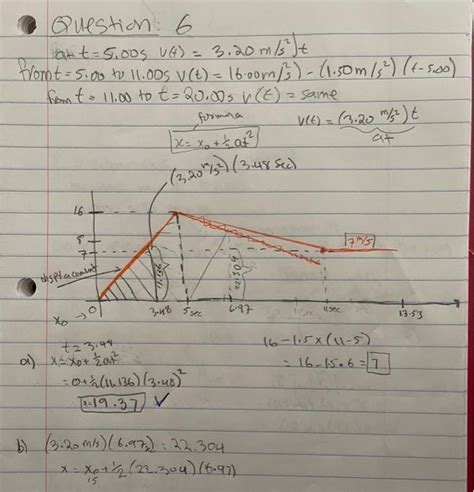 Question: 6
at t = 5.00s v(t) = 3.20 m/s²)t
from t = 5.00 to 11.00s v(t) = 16.00m/s) - (1.50 m/s²) (t-5.00)
from t = 11.00 to t = 20.00s v(t) = same
formula
x = x₀ + ½at²
v(t) = (3.20 m/s²) t
at
(3.20 m/s²) (3.48 sec)
16
8
7
7 m/s
displacement
x₀ → 0
3.48
5 sec
6.97
11 sec
13.53
t = 3.48
16 - 1.5 x (11-5)
a) x = x₀ + ½at²
= 16 - 15.6 = 7
= 0 + ½ (11.136) (3.48)²
x = 19.37 ✓
b) (3.20 m/s) (6.97s) = 22.304
x = x₀ + 1/2 (22.304) (6.97)
15